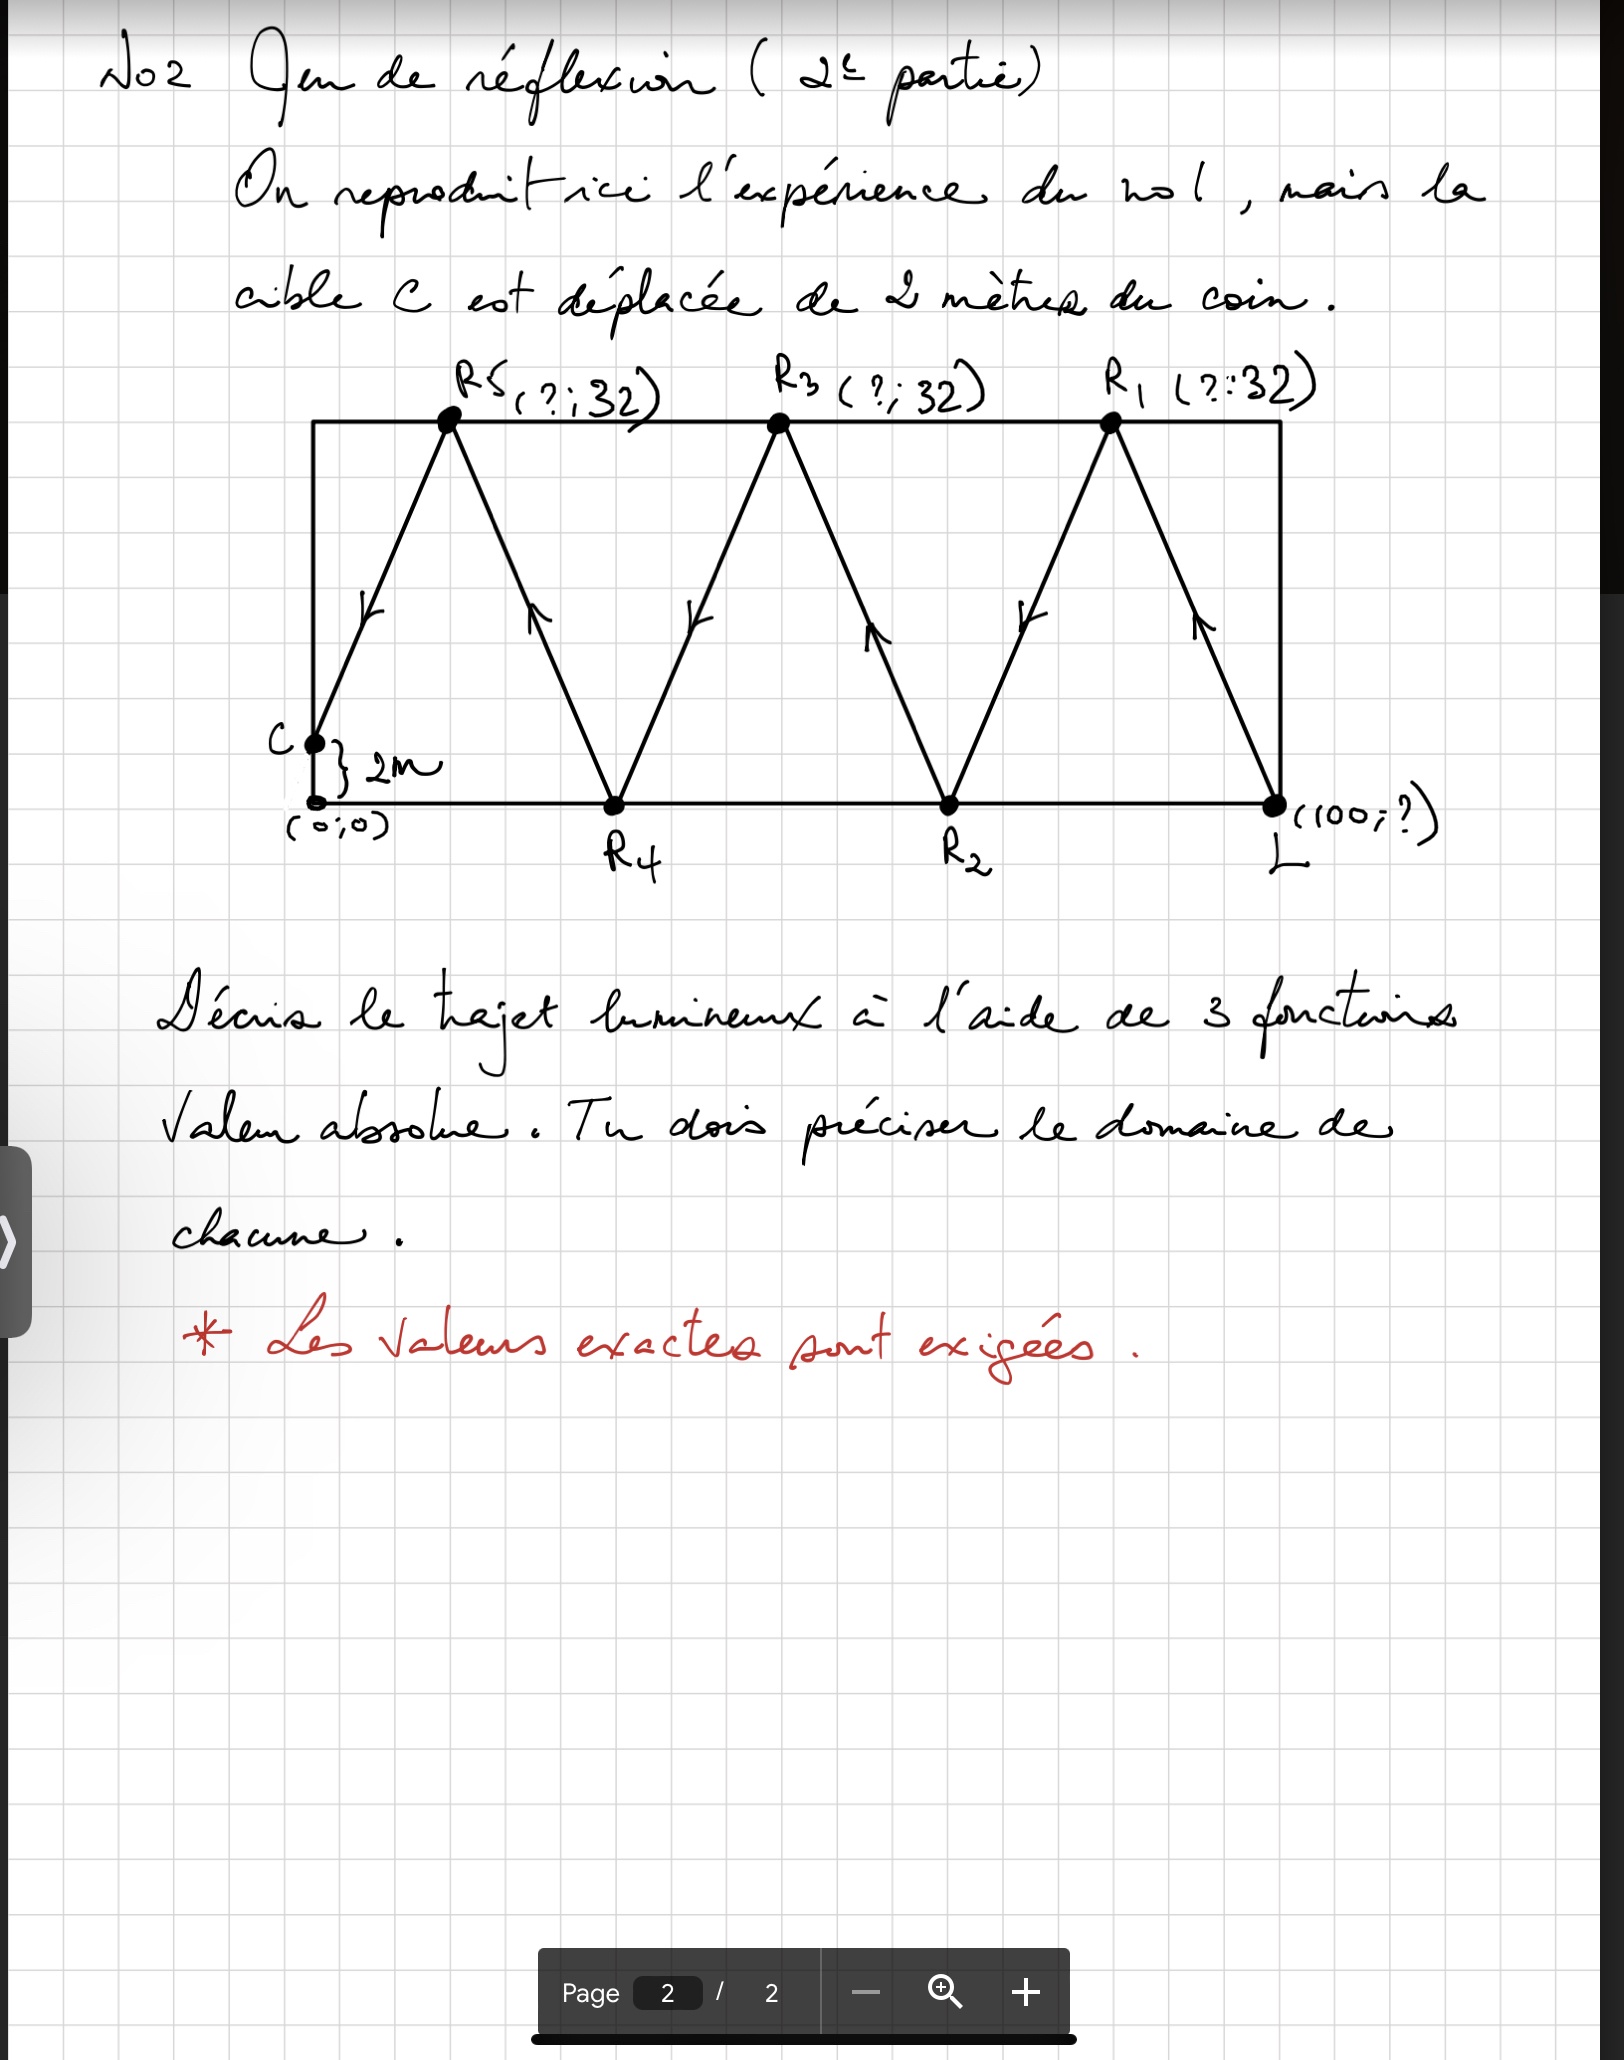 No2 Jeu de réflexion (2e partie)
On reproduit ici l'expérience du no 1, mais la
cible C est déplacée de 2 mètres du coin.
R5 (?;32) R3 (?;32) R1 (?;32)
C } 2m
(0;0) R4 R2 L (100;?)
Décris le trajet lumineux à l'aide de 3 fonctions
Valeur absolue. Tu dois préciser le domaine de
chacune.
* Les valeurs exactes sont exigées.
Page 2 / 2